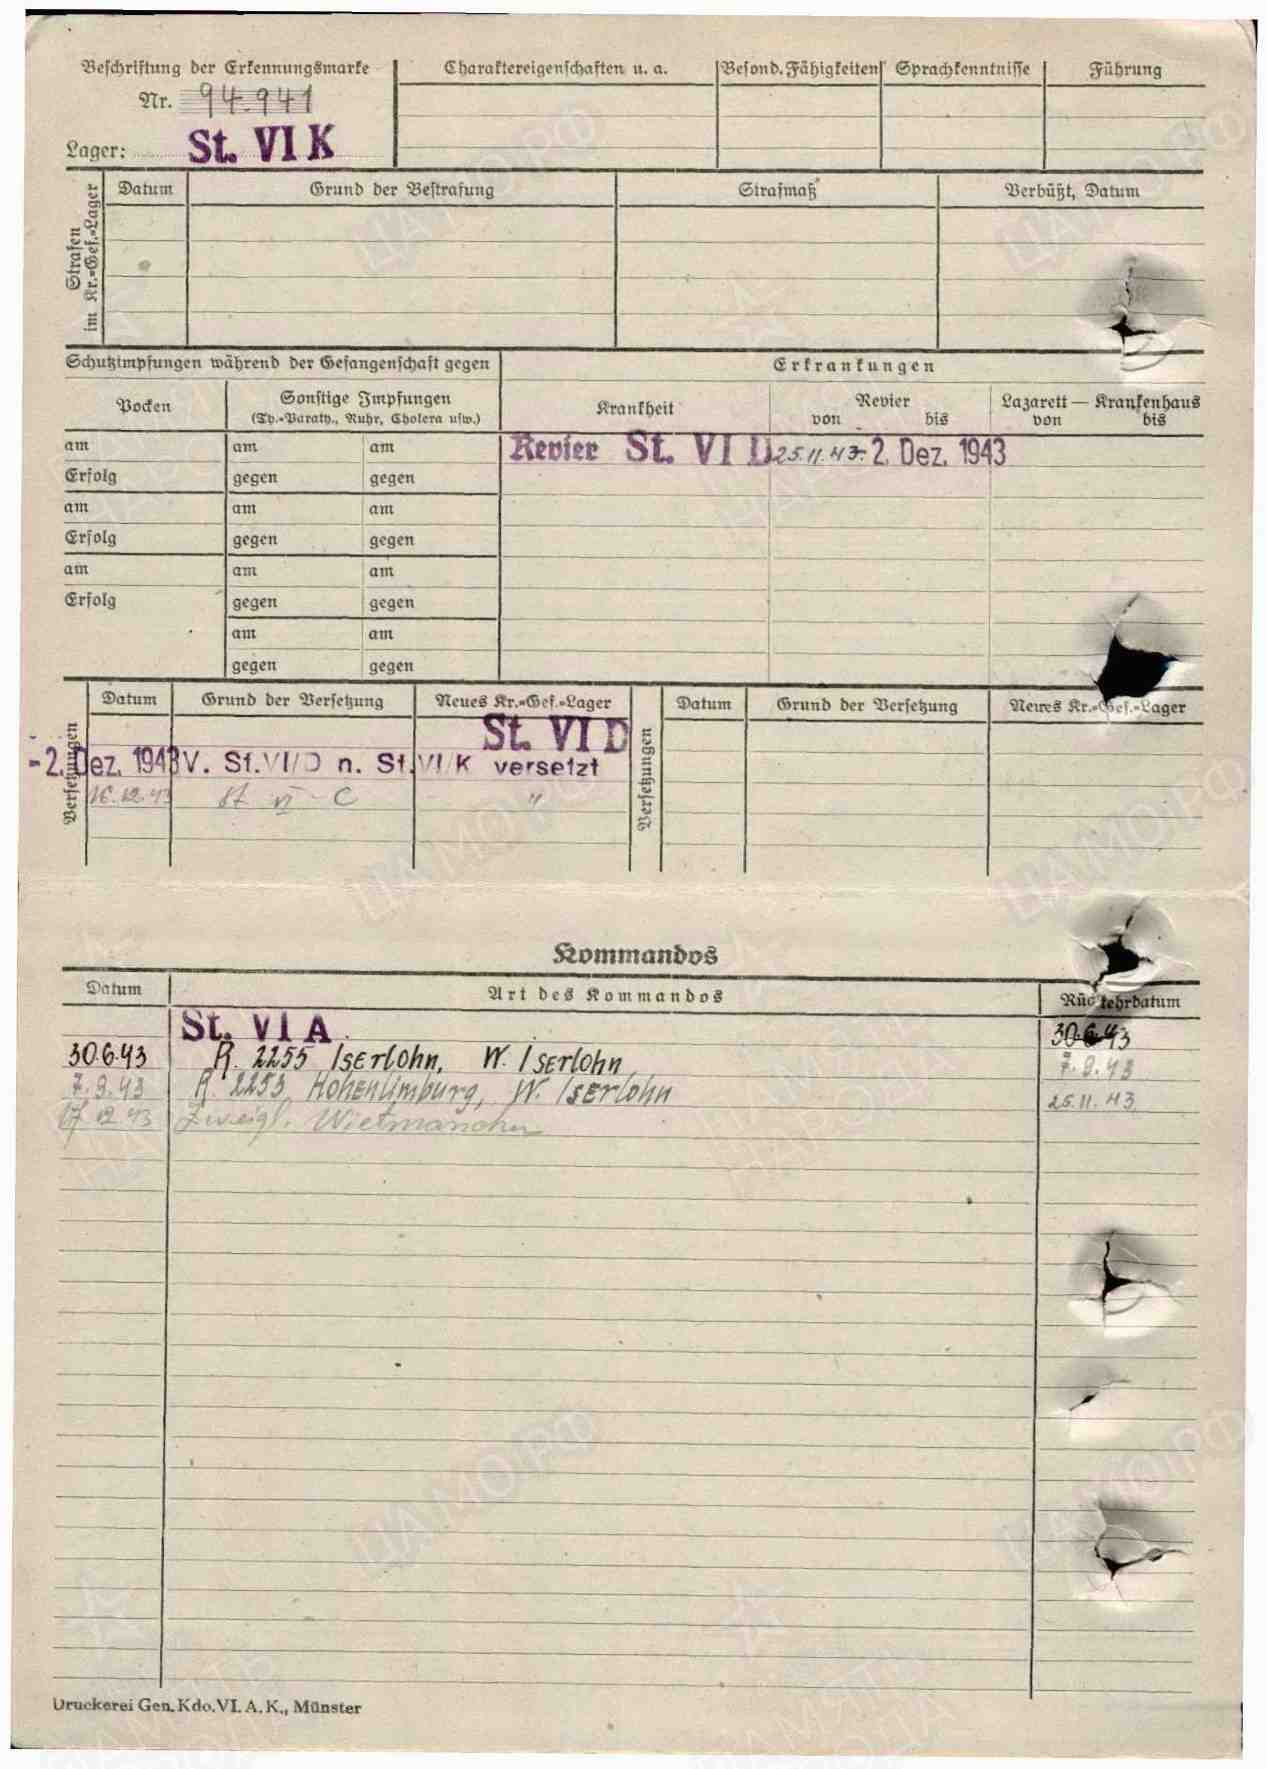 Beschriftung der Erkennungsmarke
Nr. 94.941
Lager: St. VI K
Charaktereigenschaften u. a.
Besond. Fähigkeiten
Sprachkenntnisse
Führung
Strafen
im Kr.=Gef.=Lager
Datum
Grund der Bestrafung
Strafmaß
Verbüßt, Datum
Schutzimpfungen während der Gefangenschaft gegen
Erkrankungen
Pocken
Sonstige Impfungen
(Ty.=Paraty., Ruhr, Cholera usw.)
Krankheit
Revier
von bis
Lazarett — Krankenhaus
von bis
am am am
Erfolg gegen gegen
am am am
Erfolg gegen gegen
am am am
Erfolg gegen gegen
am am
gegen gegen
Revier St. VI D 25.11.43. 2. Dez. 1943
Versetzungen
Datum Grund der Versetzung Neues Kr.=Gef.=Lager
St. VI D
-2. Dez. 1943 V. St. VI/D n. St. VI/K versetzt
16.12.43 St VI C "
Versetzungen
Datum Grund der Versetzung Neues Kr.=Gef.=Lager
Kommandos
Datum Art des Kommandos Rückkehrdatum
St. VI A 30.6.43
30.6.43 R. 2255 Iserlohn, W. Iserlohn 7.9.43
7.9.43 R. 2253 Hohenlimburg, W. Iserlohn 25.11.43
17.12.43 Zweigl. Wietmarschen
Druckerei Gen. Kdo. VI. A. K., Münster
ЦАМО.РФ
ПАМЯТЬ
НАРОДА